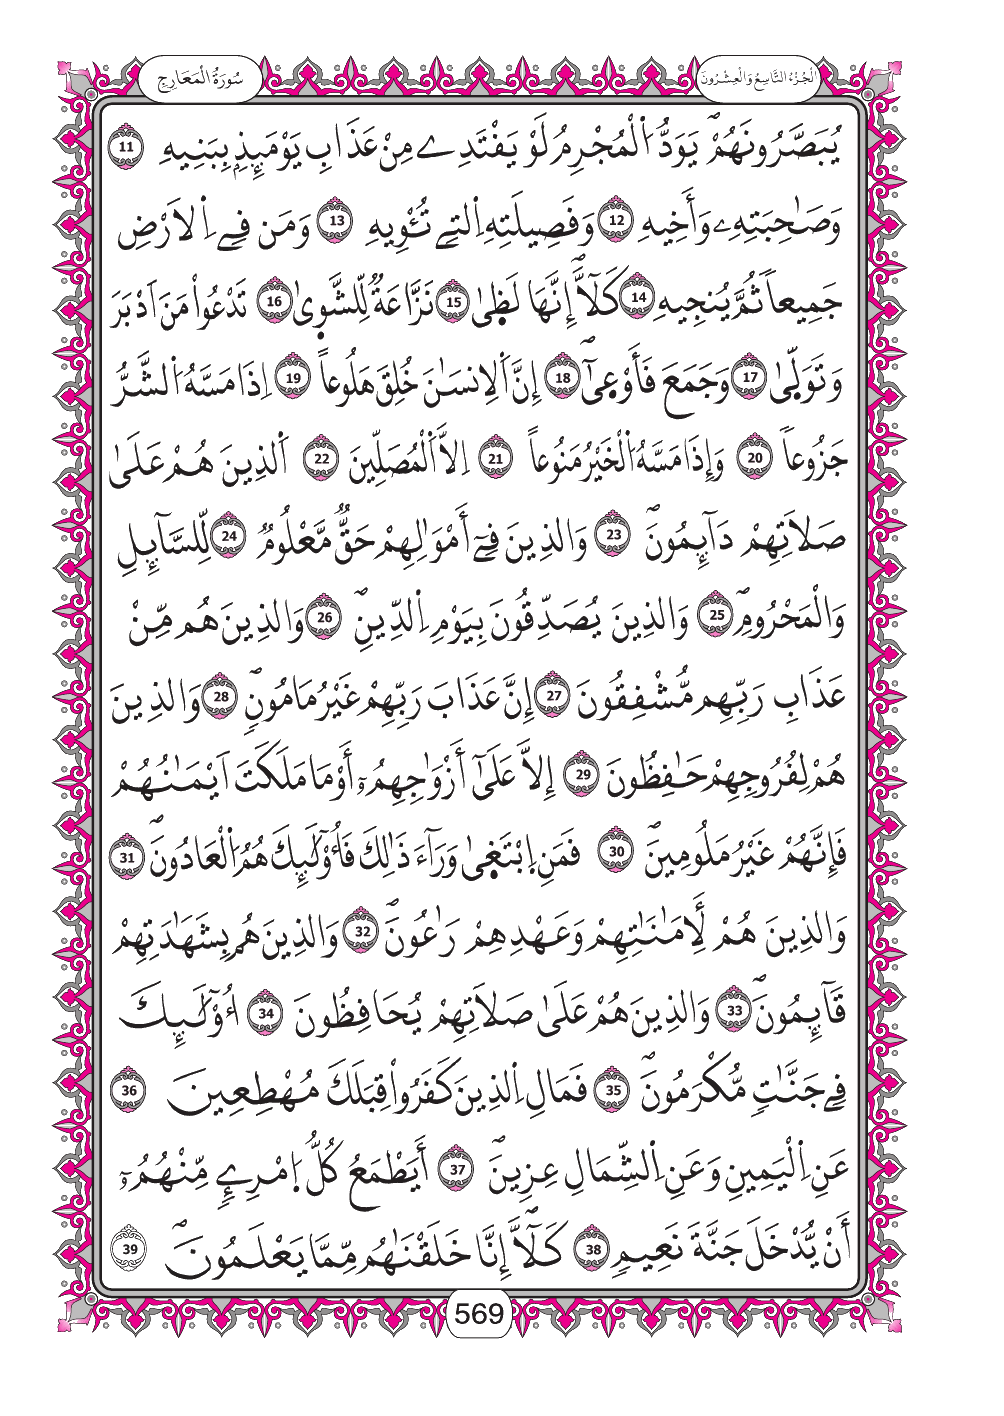 سُورَةُ الْمَعَارِجِ
الْجُزْءُ التَّاسِعُ وَالْعِشْرُونَ
يُبَصَّرُونَهُمْ يَوَدُّ اُ۬لْمُجْرِمُ لَوْ يَفْتَدِے مِنْ عَذَابِ يَوْمَئِذِۢ بِبَنِيهِ 11
وَصَٰحِبَتِهِۦ وَأَخِيهِ 12 وَفَصِيلَتِهِ اِ۬لتِے تُـْٔوِيهِ 13 وَمَن فِے اِ۬لَارْضِ
جَمِيعاٗ ثُمَّ يُنجِيهِ 14 كَلَّآ إِنَّهَا لَظ۪يٰ 15 نَزَّاعَةٞ لِّلشَّو۪يٰ 16 تَدْعُواْ مَنَ اَدْبَرَ
وَتَوَلّ۪يٰ 17 وَجَمَعَ فَأَوْع۪يٰٓ 18 إِنَّ اَ۬لِانسَٰنَ خُلِقَ هَلُوعاً 19 اِذَا مَسَّهُ اُ۬لشَّرُّ
جَزُوعاٗ 20 وَإِذَا مَسَّهُ اُ۬لْخَيْرُ مَنُوعاً 21 اِلَّا اَ۬لْمُصَلِّينَ 22 اَ۬لذِينَ هُمْ عَلَىٰ
صَلَاتِهِمْ دَآئِمُونَ 23 وَالذِينَ فِےٓ أَمْوَٰلِهِمْ حَقّٞ مَّعْلُومٞ 24 لِّلسَّآئِلِ
وَالْمَحْرُومِ 25 وَالذِينَ يُصَدِّقُونَ بِيَوْمِ اِ۬لدِّينِ 26 وَالذِينَ هُم مِّنْ
عَذَابِ رَبِّهِم مُّشْفِقُونَ 27 إِنَّ عَذَابَ رَبِّهِمْ غَيْرُ مَامُونٖ 28 وَالذِينَ
هُمْ لِفُرُوجِهِمْ حَٰفِظُونَ 29 إِلَّا عَلَىٰٓ أَزْوَٰجِهِمُۥٓ أَوْ مَا مَلَكَتَ اَيْمَٰنُهُمْ
فَإِنَّهُمْ غَيْرُ مَلُومِينَ 30 فَمَنِ اِ۪بْتَغ۪يٰ وَرَآءَ ذَٰلِكَ فَأُوْلَٰٓئِكَ هُمُ اُ۬لْعَادُونَ 31
وَالذِينَ هُمْ لِأَمَٰنَٰتِهِمْ وَعَهْدِهِمْ رَٰعُونَ 32 وَالذِينَ هُم بِشَهَٰدَتِهِمْ
قَآئِمُونَ 33 وَالذِينَ هُمْ عَلَىٰ صَلَاتِهِمْ يُحَافِظُونَ 34 أُوْلَٰٓئِكَ
فِے جَنَّٰتٖ مُّكْرَمُونَ 35 فَمَالِ اِ۬لذِينَ كَفَرُواْ قِبَلَكَ مُهْطِعِينَ 36
عَنِ اِ۬لْيَمِينِ وَعَنِ اِ۬لشِّمَالِ عِزِينَ 37 أَيَطْمَعُ كُلُّ اُ۪مْرِےٕٖ مِّنْهُمُۥٓ
أَنْ يُّدْخَلَ جَنَّةَ نَعِيمٖ 38 كَلَّآ إِنَّا خَلَقْنَٰهُم مِّمَّا يَعْلَمُونَ 39
569